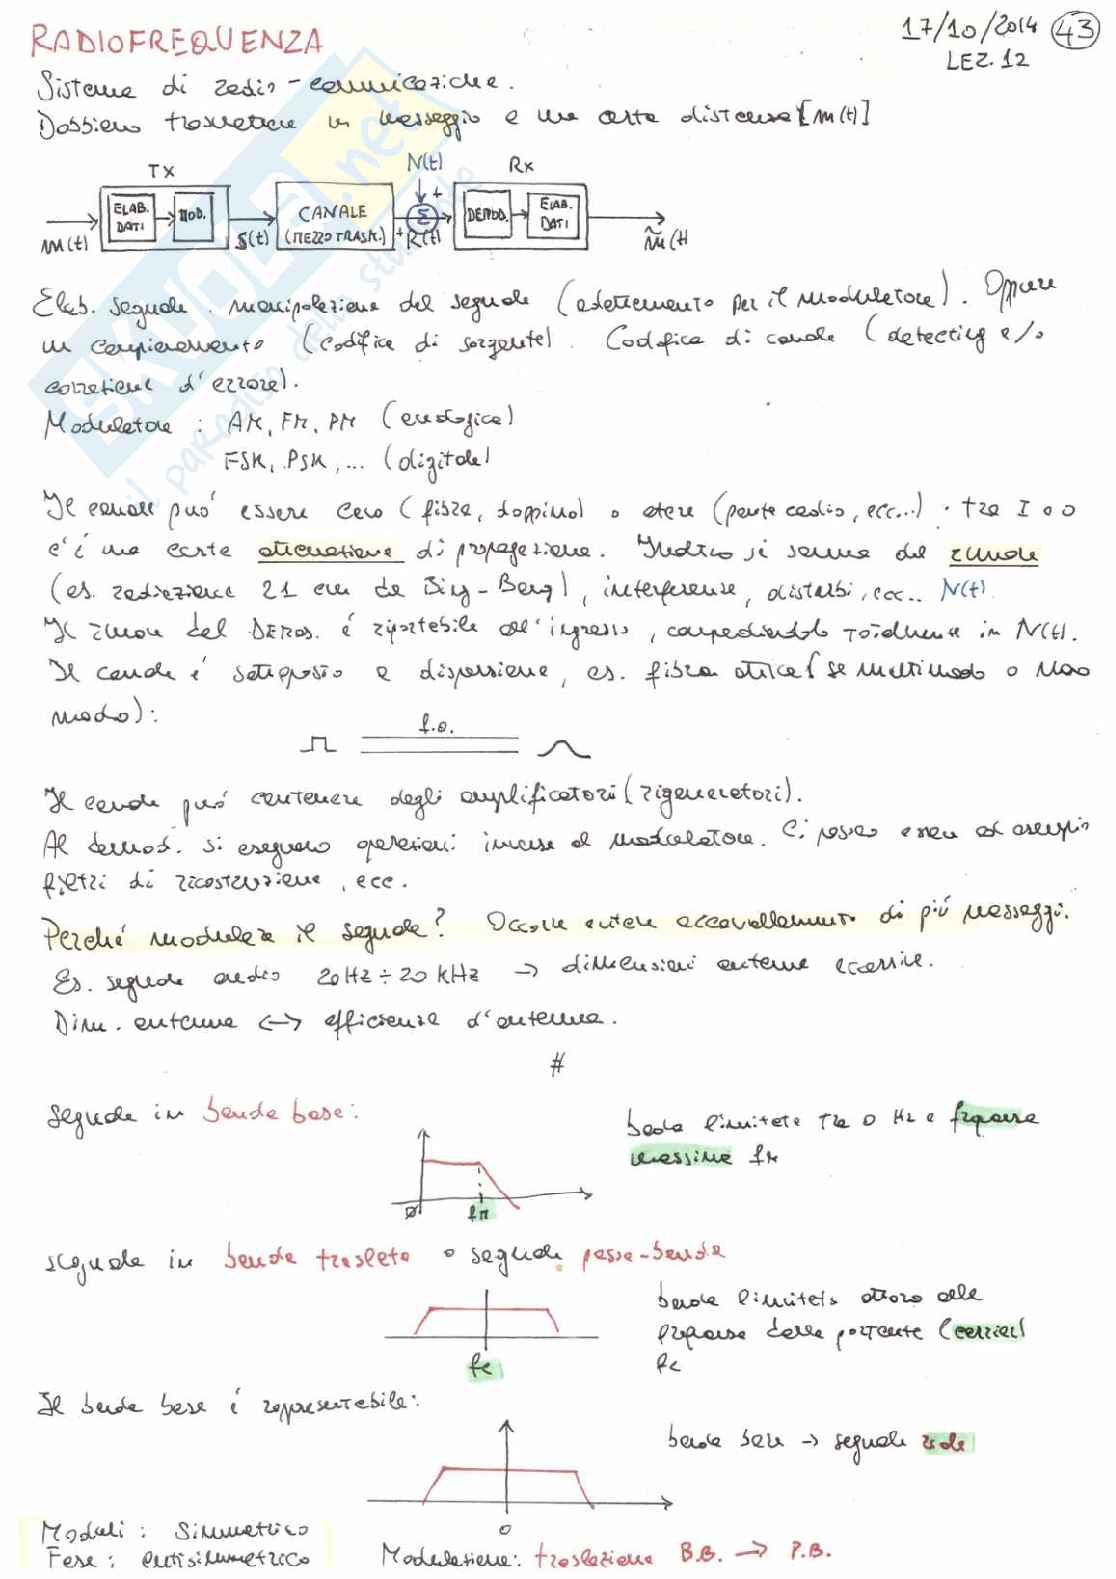 17/10/2014 43
RADIOFREQUENZA
LEZ. 12
Sistema di radio-comunicazione.
Dobbiamo trasmettere un messaggio a una certa distanza [m(t)]
TX N(t) Rx
ELAB. DATI MOD. CANALE (MEZZO TRASM.) Σ DEMOD. ELAB. DATI
m(t) S(t) + R(t) + m̃(t
Elab. segnale: manipolazione del segnale (adattamento per il modulatore). Oppure
un campionamento (codifica di sorgente). Codifica di canale (detecting e/o
correzione d'errore).
Modulatore: AM, FM, PM (analogica)
FSK, PSK, ... (digitale)
Il canale può essere cavo (fibra, doppino) o etere (ponte radio, ecc...). Tra I e O
c'è una certa attenuazione di propagazione. Inoltre si somma del rumore
(es. radiazione 21 cm da Big-Bang), interferenze, disturbi, ecc.. N(t)
Il rumore del DEMOD. è riportabile all'ingresso, comprendendolo totalmente in N(t).
Il canale è sottoposto a dispersione, es. fibra ottica (se multimodo o mono
modo):
f.o.
Il canale può contenere degli amplificatori (rigeneratori).
Al demod. si eseguono operazioni inverse al modulatore. Ci possono essere ad esempio
filtri di ricostruzione, ecc.
Perché modulare il segnale? Occorre evitare accavallamento di più messaggi.
Es. segnale audio 20Hz ÷ 20 kHz → dimensioni antenne eccessive.
Dim. antenna ↔ efficienza d'antenna.
#
segnale in banda base:
banda limitata tra 0 Hz e frequenza
massima fM
0 fM
segnale in banda traslata o segnali passa-banda
banda limitata attorno alla
frequenza della portante (carrier)
fc
fc
Il banda base è rappresentabile:
banda base → segnale reale
0
Moduli: simmetrico
Fase: antisimmetrico
Modulazione: traslazione B.B. → P.B.
SKUOLA.net
il paradiso dello studente